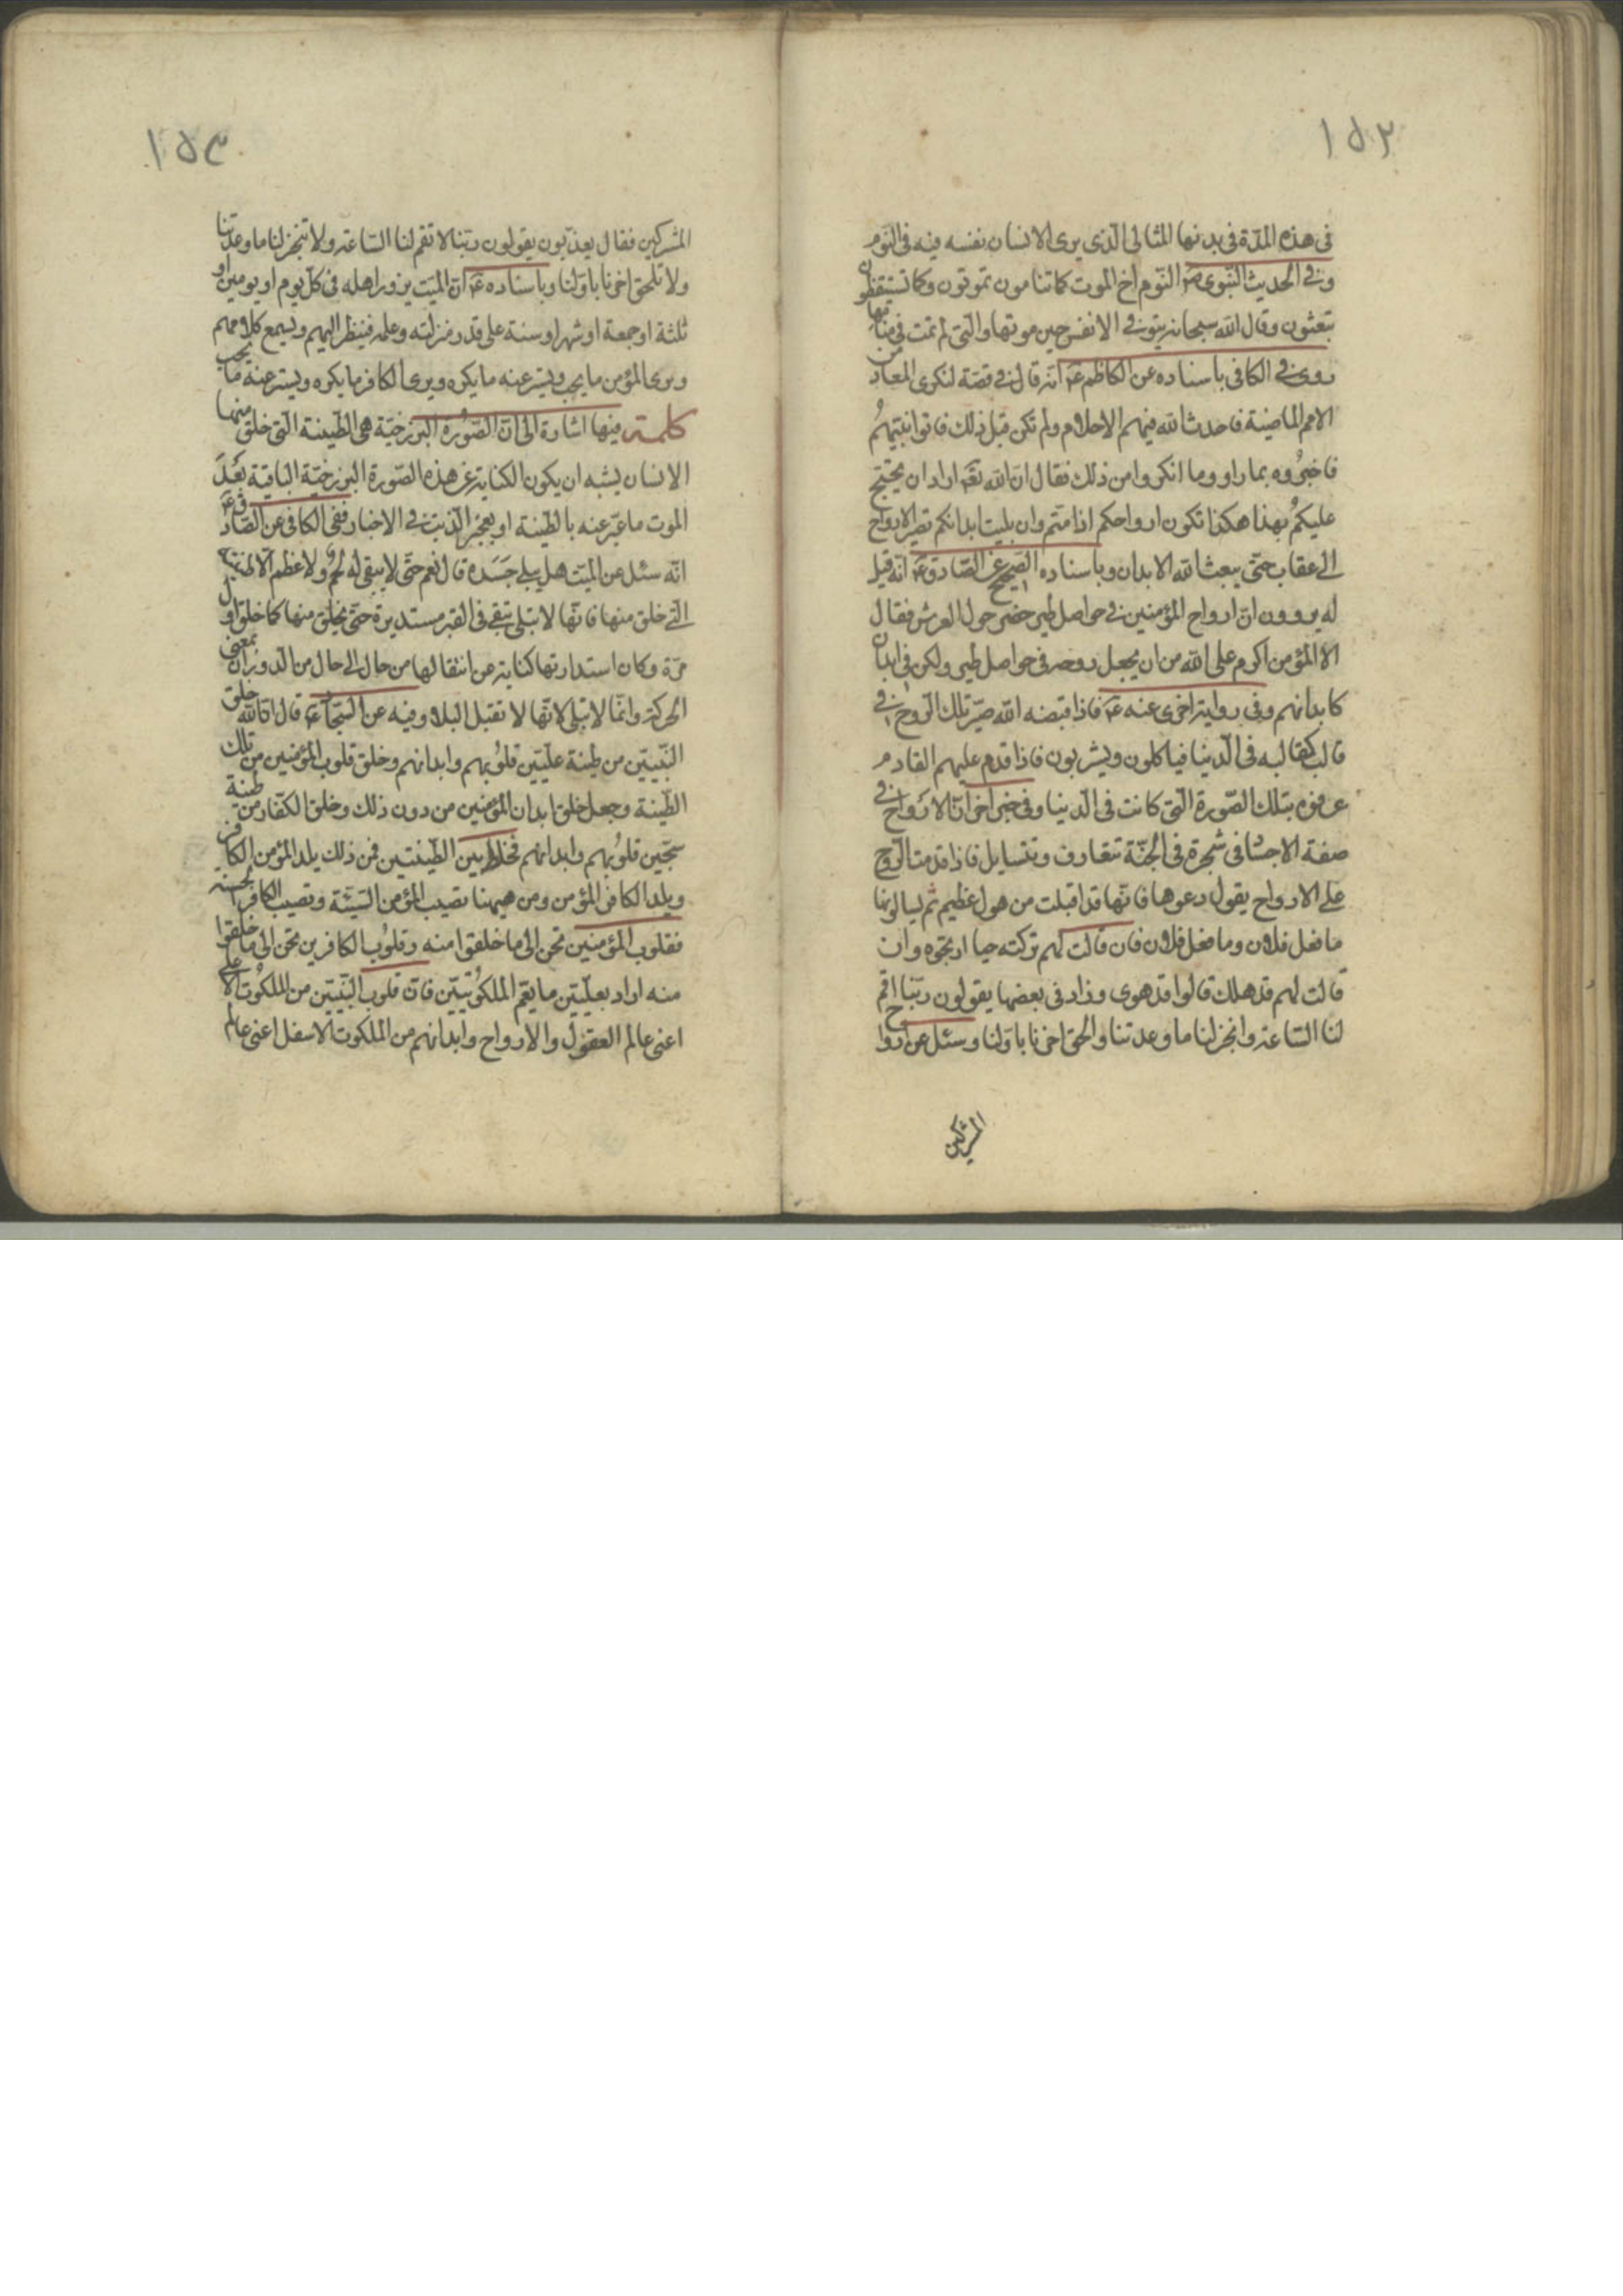 ١٥٢
فى هذه المدّة فى بدنها المثالى الّذى يرى الانسان نفسه فيه فى النوم
وفى الحديث النّبوى ص النّوم اخ الموت كما تنامون تموتون وكما تستيقظون
تبعثون وقال الله سبحانه يتوفى الانفس حين موتها والّتى لم تمت فى منامها
روى فى الكافى باسناده عن الكاظم ع انّه قال فى قصّة لنكرى المعاد من
الامم الماضية فاحدث الله فيهم الاحلام ولم تكن قبل ذلك فاتوا نبيّهم
فاخبروه بما راو وما انكروا من ذلك فقال انّ الله تعَ اراد ان يحتج
عليكم بهذا هكذا تكون ارواحكم اذا متّم وان بليت ابدانكم تصير الارواح
الى عقاب حتّى يبعث الله الابدان وباسناده الصّحيح عن الصّادق ع انّه قيل
له يروون انّ ارواح المؤمنين فى حواصل طير خضر حول العرش فقال
لا المؤمن اكرم على الله من ان يجعل روحه فى حواصل طير ولكن فى ابدان
كابدانهم وفى رواية اخرى عنه ع فاذا قبضه الله صيّر تلك الرّوح فى
قالب كقالبه فى الّدنيا فياكلون ويشربون فاذا قدم عليهم القادم
عرفوه بتلك الصّورة الّتى كانت فى الّدنيا وفى خبر اخر انّ الارواح فى
صفة الاجساد فى شجرة فى الجنّة تتعارف وتتسايل فاذا قدمت الرّوح
على الارواح يقول دعوها فانّها قد اقبلت من هول عظيم ثم يسالونها
ما فعل فلان وما فعل فلان فان قالت لهم تركته حيا ارتجوه وان
قالت لهم قد هلك قالوا قد هوى وزاد فى بعضها يقولون ربّنا اقم
لنا السّاعة وانجز لنا ما وعدتنا والحق اخرنا باوّلنا وسئل عن ارواح
المشركين
١٥٣
المشركين فقال يعذّبون يقولون ربّنا لا تقم لنا السّاعة ولا تنجز لنا ما وعدتنا
ولا تلحق اخرنا باوّلنا وباسناده ع انّ الميّت يزور اهله فى كلّ يوم او يومين او
ثلثة او جمعة او شهر او سنة على قدر منزلته وعلمه فينظر اليهم ويسمع كلامهم
ويرى المؤمن ما يحب ويستر عنه ما يكره ويرى الكافر ما يكره ويستر عنه ما يحب
كلمة فيها اشارة الى انّ الصّورة البرزخيّة هى الطّينة الّتى خلق منها
الانسان يشبه ان يكون الكناية عن هذه الصّورة البرزخيّة الباقية بعد
الموت ما عبّر عنه بالطّينة او بعجز الّذنب فى الاخبار ففى الكافى عن الصّادق ع
انّه سئل عن الميّت هل يبلى جسده قال نعم حتّى لا يبقى له لحم ولا عظم الّا طينته
الّتى خلق منها فانّها لا تبلى تبقى فى القبر مستديرة حتّى يخلق منها كما خلق اوّل
مرّة وكان استدارتها كناية عن انتقالها من حال الى حال من الّدوران بمعنى
الحركة وانّما لا تبلى لانّها لا تقبل البلا وفيه عن السّجّاد ع قال انّ الله خلق
النّبيّين من طينة علّيّين قلوبهم وابدانهم وخلق قلوب المؤمنين من تلك
الطّينة وجعل خلق ابدان المؤمنين من دون ذلك وخلق الكفّار من طينة
سجّين قلوبهم وابدانهم فخلط بين الطّينتين فمن ذلك يلد المؤمن الكافر
ويلد الكافر المؤمن ومن هيهنا تصيب المؤمن السّيئة وتصيب الكافر الحسنة
فقلوب المؤمنين تحن الى ما خلقوا منه وقلوب الكافرين تحن الى ما خلقوا
منه اراد بعلّيّين ما يعم الملكوتيّين فانّ قلوب النّبيّين من الملكوت الاعلى
اعنى عالم العقول والارواح وابدانهم من الملكوت الاسفل اعنى عالم